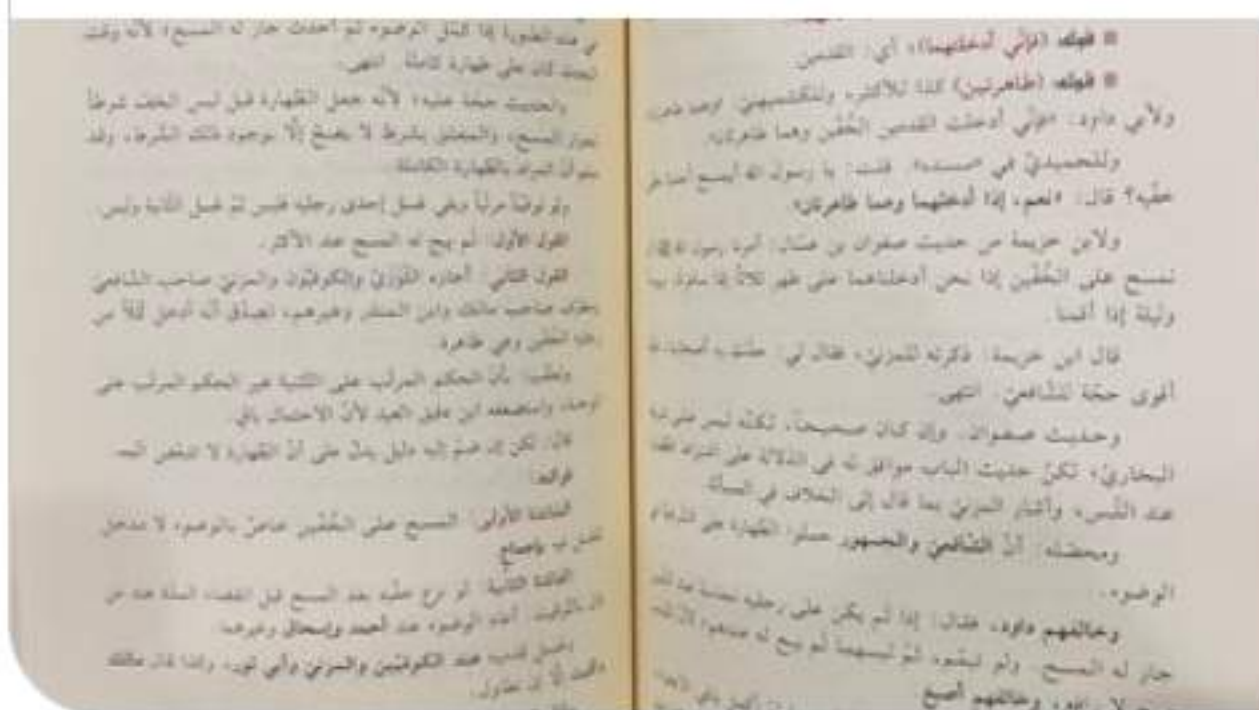 قوله (فإنّي أدخلتهما)، أي: القدمين
قوله (طاهرتين) كذا للأكثر، وللكشميهني وهما
ولأبي داود: «فإنّي أدخلت القدمين الخُفّين وهما طاهرتان»
وللحميديّ في «مسنده» قلت: يا رسول الله أيمسح أحدنا على
خفّيه؟ قال: «نعم، إذا أدخلهما وهما طاهرتان»
ولابن خزيمة من حديث صفوان بن عسّال: أمرنا رسول الله
نمسح على الخُفّين إذا نحن أدخلناهما على طهر ثلاثاً إذا سافرنا،
وليلة إذا أقمنا.
قال ابن خزيمة: ذكرته للمزنيّ، فقال لي:
أقوى حجّة للشّافعيّ. انتهى.
وحديث صفوان. وإن كان صحيحاً، لكنّه ليس على شرط
البخاريّ، لكنّ حديث الباب موافق له في الدّلالة على اشتراط
عند اللّبس، وأشار المزنيّ بما قال إلى الخلاف في المسألة
ومحصّله: أنّ الشّافعيّ والجمهور حملوا الطّهارة على
الوضوء.
وخالفهم داود، فقال: إذا لم يكن على رجليه نجاسة عند
جاز له المسح. ولو تيمّم ثمّ لبسهما لم يبح له
وخالفهم أصبغ
في هذه الصّورة إذا كمّل الوضوء ثم أحدث جاز له المسح؛ لأنّه وقت
الحدث كان على طهارة كاملة. انتهى.
والحديث حجّة عليه؛ لأنّه جعل الطّهارة قبل لبس الخفّ شرطاً
لجواز المسح، والمعلّق بشرط لا يصحّ إلّا بوجود ذلك الشّرط، وقد
أنّ المراد بالطّهارة الكاملة.
ولو توضّأ مرتّباً وبقي غسل إحدى رجليه فلبس ثمّ غسل الثّانية ولبس.
القول الأول: لم يبح له المسح عند الأكثر.
القول الثاني: أجازه الثّوريّ والكوفيّون والمزنيّ صاحب الشّافعيّ
ومطرّف صاحب مالك وابن المنذر وغيرهم، لصدق أنّه أدخل كلّاً من
رجليه الخفّين وهي طاهرة.
وتعقّب: بأنّ الحكم المرتّب على التّثنية غير الحكم المرتّب على
الوحدة، واستضعفه ابن دقيق العيد لأنّ الاحتمال باقٍ.
قال: لكن إن ضمّ إليه دليل يدلّ على أنّ الطّهارة لا تتبعّض اتّجه.
فوائد:
الفائدة الأولى: المسح على الخُفّين خاصّ بالوضوء لا مدخل
للغسل فيه بإجماعٍ.
الفائدة الثانية: لو نزع خفّه بعد المسح قبل انقضاء المدّة عند من
قال بالتّوقيت. أعاد الوضوء عند أحمد وإسحاق وغيرهما.
وغسل قدميه عند الكوفيّين والمزنيّ وأبي ثور، وكذا قال مالك
إلّا إن تطاول.